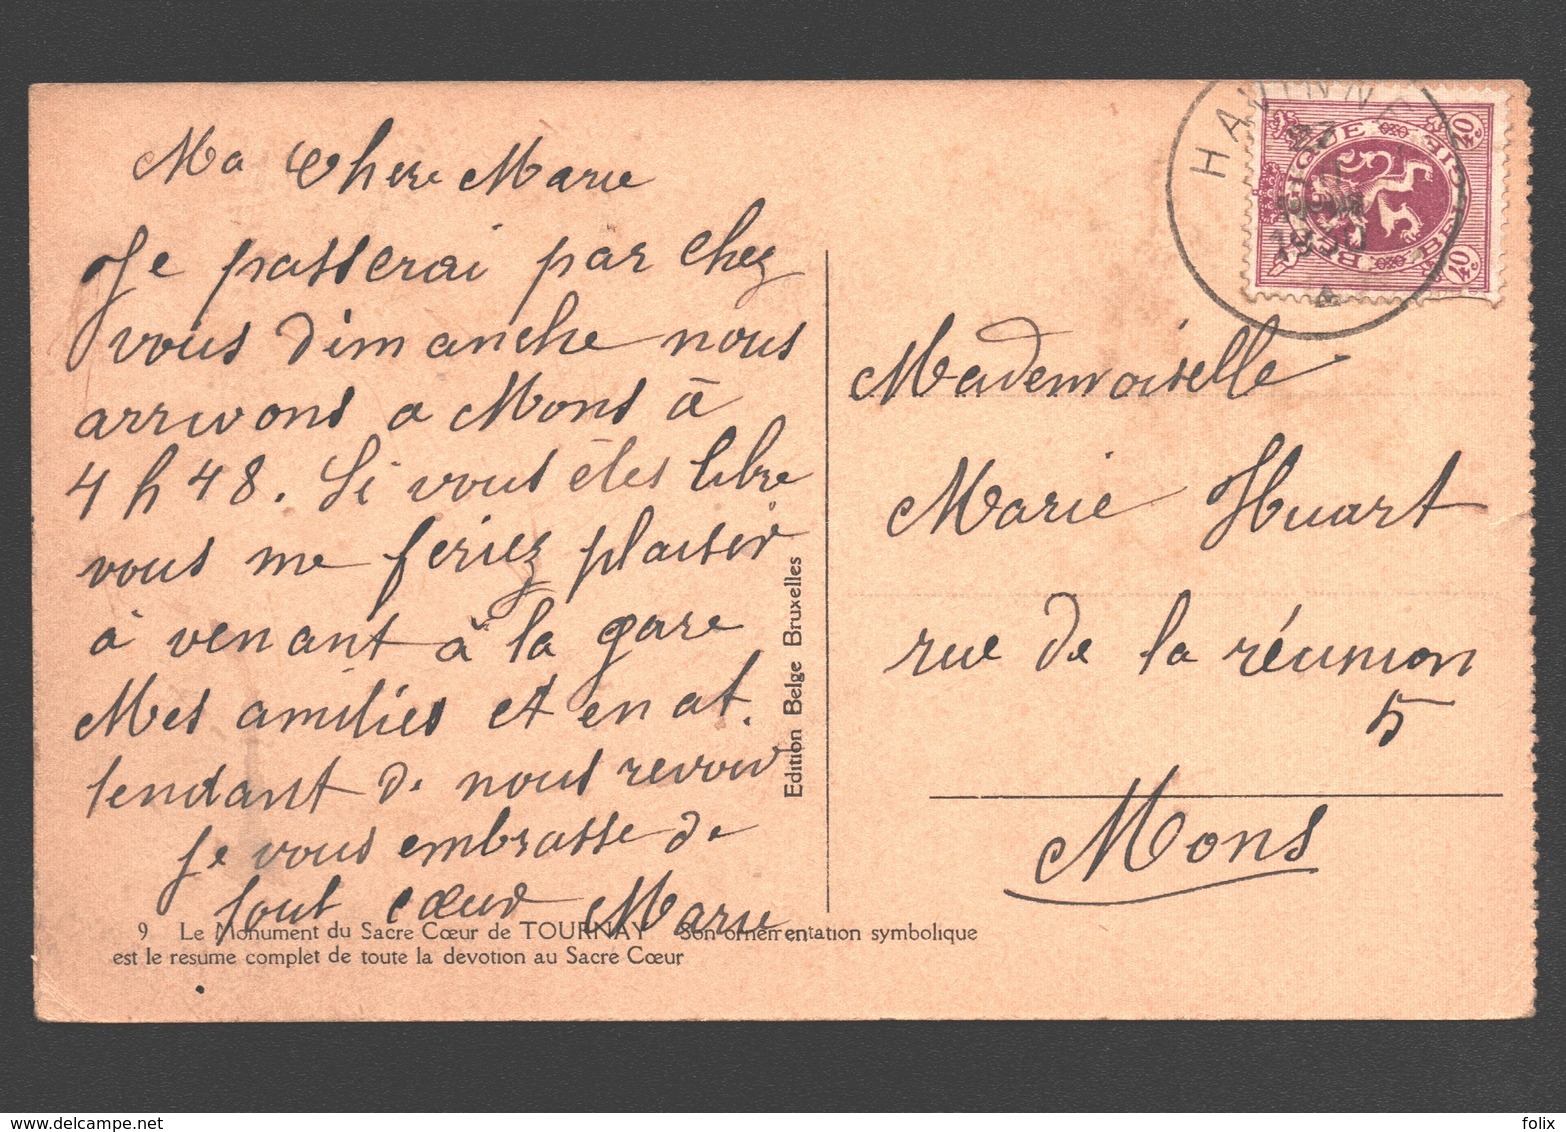 Ma Chere Marie
Je passerai par chez
vous dimanche nous
arrivons a Mons à
4 h 48. Si vous êtes libre
vous me feriez plaisir
à venant à la gare
Mes amitiés et en at.
tendant de nous revoir
Je vous embrasse de
tout cœur Marie
9 Le Monument du Sacre Cœur de TOURNAY Son ornementation symbolique
est le resume complet de toute la devotion au Sacre Cœur
Edition Belge Bruxelles
HAVINNE
1930
A
BELGIQUE
BELGIE
40
40 c
Mademoiselle
Marie Huart
rue de la réunion
5
Mons
felix